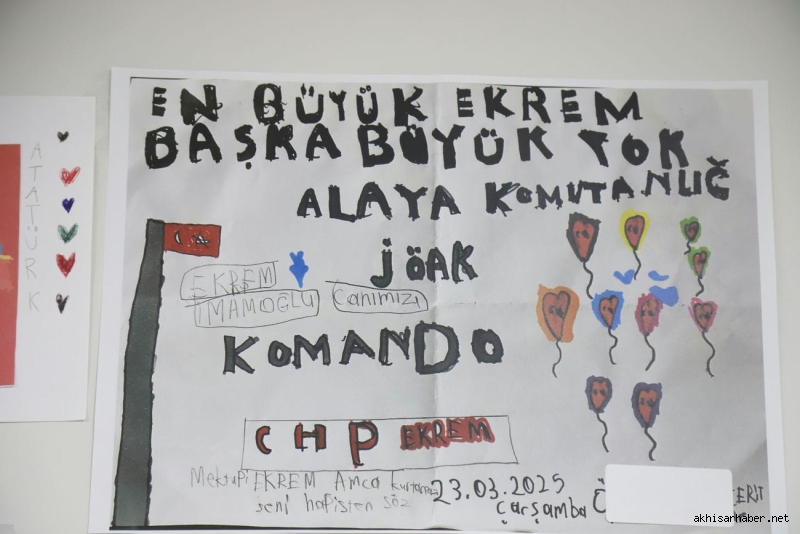 EN BÜYÜK EKREM
BAŞKA BÜYÜK YOK
ALAYA KOMUTANLIĞ
JÖAK
EKREM
İMAMOĞLU canımızı
KOMANDO
CHP EKREM
Mektupi EKREM Amca
seni hapisten söz
23.03.2025
Çarşamba Ö
ERIT
ATATÜRK
akhisarhaber.net